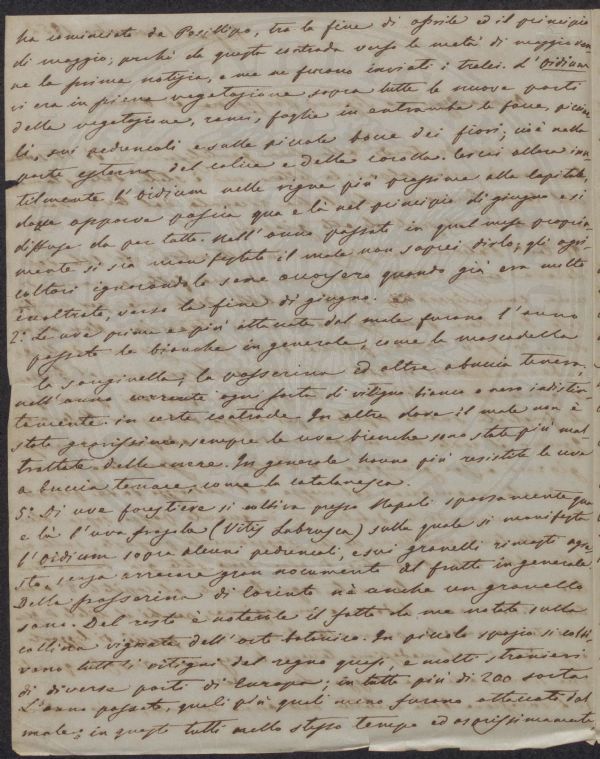 ha cominciato da Posillipo, tra la fine di aprile ed il principio
di maggio; perchè da questa contrada verso la metà di maggio
ne la prima notizia, e me ne furono inviati i tralci. L'Oidium
vi era in piena vegetazione sopra tutte le nuove parti
della vegetazione, rami, foglie in entrambe le facce, piccio
li, sui peduncoli e sulle piccole bocce dei fiori; cioè nella
parte esterna del calice e della corolla. Cercai allora inu
tilmente l'Oidium nelle vigne più prossime alla Capitale,
dove apparve poscia qua e là nel principio di giugno e si
diffuse da per tutto. Nell'anno passato in qual mese propria-
mente si sia manifestato il male non saprei dirlo; gli agri-
coltori ignorandolo se ne accorsero quando già era molto
inoltrato, verso la fine di giugno.
2.° Le uve prime e più attaccate dal male furono l'anno
passato le bianche in generale, come la moscadella
la sanginella, la passerina ed altre a buccia tenera,
nell'anno corrente ogni sorta di vitigno bianco o nero indistin
tamente in certe contrade. In altre dove il male non è
stato gravissimo, sempre le uve bianche sono state più mal
trattate delle nere. In generale hanno più resistito le uve
a buccia tenace, come la catalanesca.
5.° Di uve forestiere si coltiva presso Napoli sparsamente qua
e là l'uva fragola (Vitis Labrusca) sulla quale si manifestò
l'Oidium sopra alcuni peduncoli, e sui granelli rimasti agre
sto, senza arrecare gran nocumento dei frutti in generale
Della passerina di Corinto nè anche un granello
sano. Del resto è notevole il fatto da me notato sulla
collina vignata dell'orto botanico. In piccolo spazio si colti
vano tutti i vitigni del regno quasi, e molti stranieri
di diverse parti di Europa; in tutto più di 200 sorta
L'anno passato, quali più quali meno furono attaccati dal
male; in questo tutti nello stesso tempo ed asprissimamente,